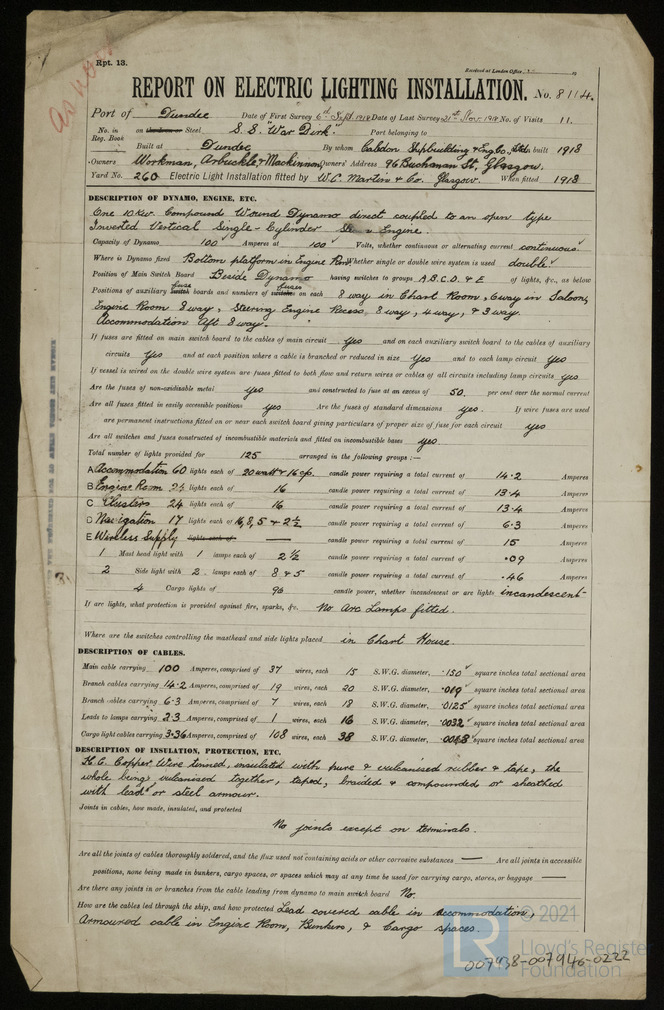 As now
Rpt. 13.
Received at London Office
REPORT ON ELECTRIC LIGHTING INSTALLATION. No. 8114.
Port of Dundee Date of First Survey 6th Sept. 1918 Date of Last Survey 21st Nov. 1918 No. of Visits 11.
No. in Reg. Book on the Iron or Steel S.S. "War Dirk" Port belonging to
Built at Dundee By whom Caledon Shipbuilding & Eng Co. Ltd. When built 1918
Owners Workman, Arbuckle & Mackinnon, Owners' Address 96 Buchanan St., Glasgow.
Yard No. 260 Electric Light Installation fitted by W.C. Martin & Co. Glasgow. When fitted 1918
DESCRIPTION OF DYNAMO, ENGINE, ETC.
One 10 Kw. Compound Wound Dynamo direct coupled to an open type
Inverted Vertical Single-Cylinder Steam Engine.
Capacity of Dynamo 100 Amperes at 100 Volts, whether continuous or alternating current continuous.
Where is Dynamo fixed Bottom platform in Engine Rm. Whether single or double wire system is used double.
Position of Main Switch Board Beside Dynamo having switches to groups A.B.C.D. & E of lights, &c., as below
Positions of auxiliary switch fuse boards and numbers of switches fuses on each 8 way in Chart Room, 6 way in Saloon,
Engine Room 8 way, Steering Engine Recess, 8 way, 4 way, & 3 way.
Accommodation Aft 8 way.
If fuses are fitted on main switch board to the cables of main circuit yes and on each auxiliary switch board to the cables of auxiliary
circuits yes and at each position where a cable is branched or reduced in size yes and to each lamp circuit yes
If vessel is wired on the double wire system are fuses fitted to both flow and return wires or cables of all circuits including lamp circuits yes
Are the fuses of non-oxidizable metal yes and constructed to fuse at an excess of 50. per cent over the normal current
Are all fuses fitted in easily accessible positions yes Are the fuses of standard dimensions yes. If wire fuses are used
are permanent instructions fitted on or near each switch board giving particulars of proper size of fuse for each circuit yes
Are all switches and fuses constructed of incombustible materials and fitted on incombustible bases yes.
Total number of lights provided for 125 arranged in the following groups :—
A Accommodation 60 lights each of 20 watt & 16 cp. candle power requiring a total current of 14.2 Amperes
B Engine Room 24 lights each of 16 candle power requiring a total current of 13.4 Amperes
C Clusters 24 lights each of 16 candle power requiring a total current of 13.4 Amperes
D Navigation 17 lights each of 16, 8, 5 & 2½ candle power requiring a total current of 6.3 Amperes
E Wireless Supply lights each of — candle power requiring a total current of 15 Amperes
1 Mast head light with 1 lamps each of 2½ candle power requiring a total current of .09 Amperes
2 Side light with 2 lamps each of 8 & 5 candle power requiring a total current of .46 Amperes
4 Cargo lights of 96 candle power, whether incandescent or arc lights incandescent
If arc lights, what protection is provided against fire, sparks, &c. No Arc Lamps fitted.
Where are the switches controlling the masthead and side lights placed in Chart House.
DESCRIPTION OF CABLES.
Main cable carrying 100 Amperes, comprised of 37 wires, each 15 S.W.G. diameter, .150 square inches total sectional area
Branch cables carrying 14.2 Amperes, comprised of 19 wires, each 20 S.W.G. diameter, .019 square inches total sectional area
Branch cables carrying 6.3 Amperes, comprised of 7 wires, each 18 S.W.G. diameter, .0125 square inches total sectional area
Leads to lamps carrying 2.3 Amperes, comprised of 1 wires, each 16 S.W.G. diameter, .0032 square inches total sectional area
Cargo light cables carrying 3.36 Amperes, comprised of 108 wires, each 38 S.W.G. diameter, square inches total sectional area
DESCRIPTION OF INSULATION, PROTECTION, ETC.
H.C. Copper Wire tinned, insulated with pure & vulcanised rubber & tape, the
whole being vulcanised together, taped, braided & compounded or sheathed
with lead or steel armour.
Joints in cables, how made, insulated, and protected
No joints except on terminals.
Are all the joints of cables thoroughly soldered, and the flux used not containing acids or other corrosive substances — Are all joints in accessible
positions, none being made in bunkers, cargo spaces, or spaces which may at any time be used for carrying cargo, stores, or baggage —
Are there any joints in or branches from the cable leading from dynamo to main switch board No.
How are the cables led through the ship, and how protected Lead covered cable in accommodation,
Armoured cable in Engine Room, Bunkers, & Cargo spaces.
© 2021
LR
Lloyd's Register
Foundation
007938-007946-0222